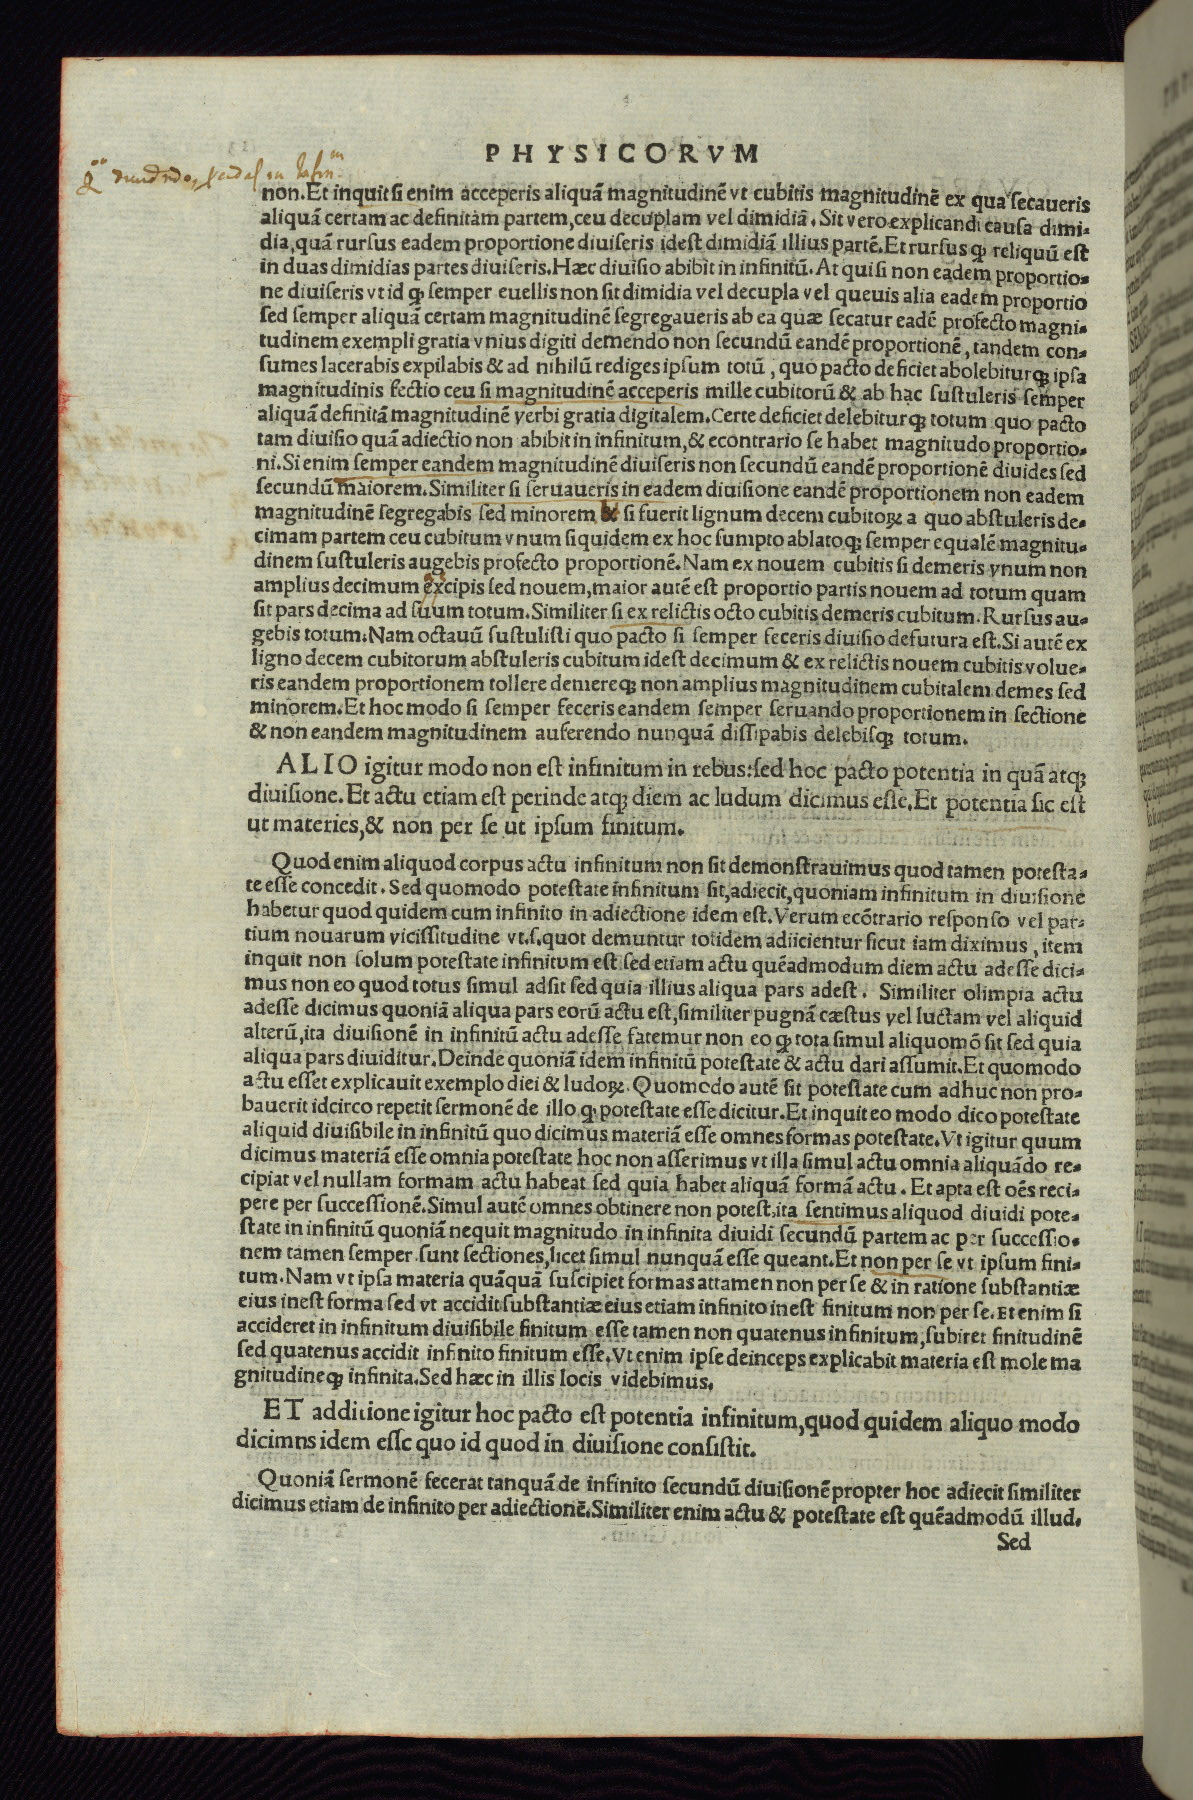 PHYSICORVM
non. Et inquit si enim acceperis aliquã magnitudinẽ vt cubitis magnitudinẽ ex qua secaueris
aliquã certam ac definitam partem, ceu decuplam vel dimidiã. Sit vero explicandi causa dimi-
dia, quã rursus eadem proportione diuiseris idest dimidiã illius partẽ. Et rursus ꝙ reliquũ est
in duas dimidias partes diuiseris. Hæc diuisio abibit in infinitũ. At qui si non eadem proportio-
ne diuiseris vt id ꝙ semper euellis non sit dimidia vel decupla vel queuis alia eadem proportio
sed semper aliquã certam magnitudinẽ segregaueris ab ea quæ secatur eadẽ profecto magni-
tudinem exempli gratia vnius digiti demendo non secundũ eandẽ proportionẽ, tandem con-
sumes lacerabis expilabis & ad nihilũ rediges ipsum totũ, quo pacto deficiet abolebiturqꝫ ipsa
magnitudinis sectio ceu si magnitudinẽ acceperis mille cubitorũ & ab hac sustuleris semper
aliquã definitã magnitudinẽ verbi gratia digitalem. Certe deficiet delebiturqꝫ totum quo pacto
tam diuisio quã adiectio non abibit in infinitum, & econtrario se habet magnitudo proportio-
ni. Si enim semper eandem magnitudinẽ diuiseris non secundũ eandẽ proportionẽ diuides sed
secundũ maiorem. Similiter si seruaueris in eadem diuisione eandẽ proportionem non eadem
magnitudinẽ segregabis sed minorem & si fuerit lignum decem cubitoꝝ a quo abstuleris de-
cimam partem ceu cubitum vnum siquidem ex hoc sumpto ablatoqꝫ semper equalẽ magnitu-
dinem sustuleris augebis profecto proportionẽ. Nam ex nouem cubitis si demeris vnum non
amplius decimum excipis sed nouem, maior autẽ est proportio partis nouem ad totum quam
sit pars decima ad suum totum. Similiter si ex relictis octo cubitis demeris cubitum. Rursus au-
gebis totum. Nam octauũ sustulisti quo pacto si semper feceris diuisio defutura est. Si autẽ ex
ligno decem cubitorum abstuleris cubitum idest decimum & ex relictis nouem cubitis volue-
ris eandem proportionem tollere demereqꝫ non amplius magnitudinem cubitalem demes sed
minorem. Et hoc modo si semper feceris eandem semper seruando proportionem in sectione
& non eandem magnitudinem auferendo nunquã dissipabis delebisqꝫ totum.
ALIO igitur modo non est infinitum in rebus: sed hoc pacto potentia in quã atqꝫ
diuisione. Et actu etiam est perinde atqꝫ diem ac ludum dicimus esse. Et potentia sic est
ut materies, & non per se ut ipsum finitum.
Quod enim aliquod corpus actu infinitum non sit demonstrauimus quod tamen potesta-
te esse concedit. Sed quomodo potestate infinitum sit, adiecit, quoniam infinitum in diuisione
habetur quod quidem cum infinito in adiectione idem est. Verum ecõtrario responso vel par-
tium nouarum vicissitudine vt. s. quot demuntur totidem adiicientur sicut iam diximus, item
inquit non solum potestate infinitum est sed etiam actu quẽadmodum diem actu adesse dici-
mus non eo quod totus simul adsit sed quia illius aliqua pars adest. Similiter olimpia actu
adesse dicimus quoniã aliqua pars eorũ actu est, similiter pugnã cæstus vel luctam vel aliquid
alterũ, ita diuisionẽ in infinitũ actu adesse fatemur non eo ꝙ tota simul aliquomõ sit sed quia
aliqua pars diuiditur. Deinde quoniã idem infinitũ potestate & actu dari assumit. Et quomodo
actu esset explicauit exemplo diei & ludoꝝ. Quomodo autẽ sit potestate cum adhuc non pro-
bauerit idcirco repetit sermonẽ de illo ꝙ potestate esse dicitur. Et inquit eo modo dico potestate
aliquid diuisibile in infinitũ quo dicimus materiã esse omnes formas potestate. Vt igitur quum
dicimus materiã esse omnia potestate hoc non asserimus vt illa simul actu omnia aliquãdo re-
cipiat vel nullam formam actu habeat sed quia habet aliquã formã actu. Et apta est oẽs reci-
pere per successionẽ. Simul autẽ omnes obtinere non potest, ita sentimus aliquod diuidi pote-
state in infinitũ quoniã nequit magnitudo in infinita diuidi secundũ partem ac per successio-
nem tamen semper sunt sectiones, licet simul nunquã esse queant. Et non per se vt ipsum fini-
tum. Nam vt ipsa materia quãquã suscipiet formas attamen non per se & in ratione substantiæ
eius inest forma sed vt accidit substantiæ eius etiam infinito inest finitum non per se. Et enim si
accideret in infinitum diuisibile finitum esse tamen non quatenus infinitum, subiret finitudinẽ
sed quatenus accidit infinito finitum esse. Vt enim ipse deinceps explicabit materia est mole ma
gnitudineqꝫ infinita. Sed hæc in illis locis videbimus.
ET additione igitur hoc pacto est potentia infinitum, quod quidem aliquo modo
dicimns idem esse quo id quod in diuisione consistit.
Quoniã sermonẽ fecerat tanquã de infinito secundũ diuisionẽ propter hoc adiecit similiter
dicimus etiam de infinito per adiectionẽ. Similiter enim actu & potestate est quẽadmodũ illud.
Sed